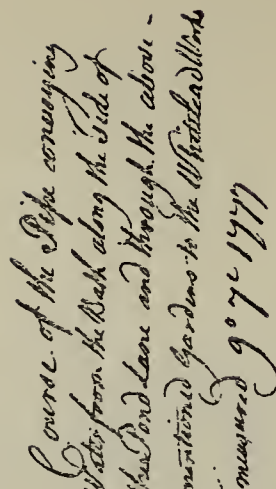 Course of the Pipe conveying
Water from the Bath along the Side of
the Pond Lane and through the above-
mentioned Gardens to the Whitelead Works
measured